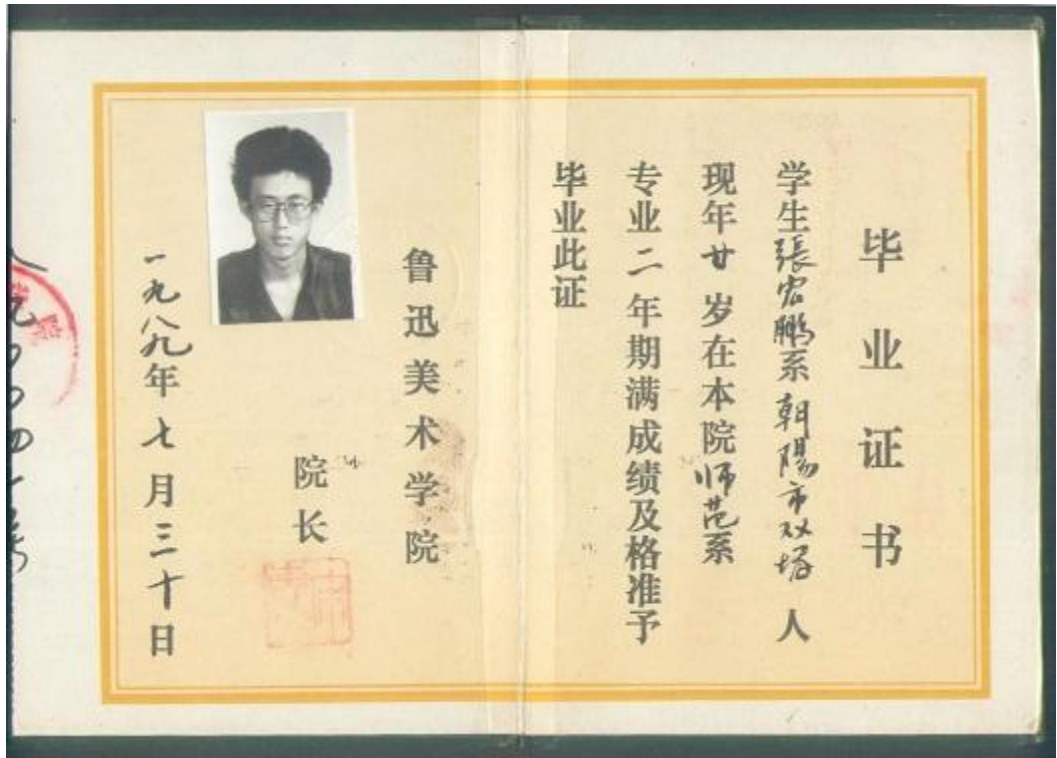 毕业证书
学生張宏鵬系朝陽市双塔人
现年廿岁在本院师范系
专业二年期满成绩及格准予
毕业此证
鲁迅美术学院
院长
一九八九年七月三十日
院